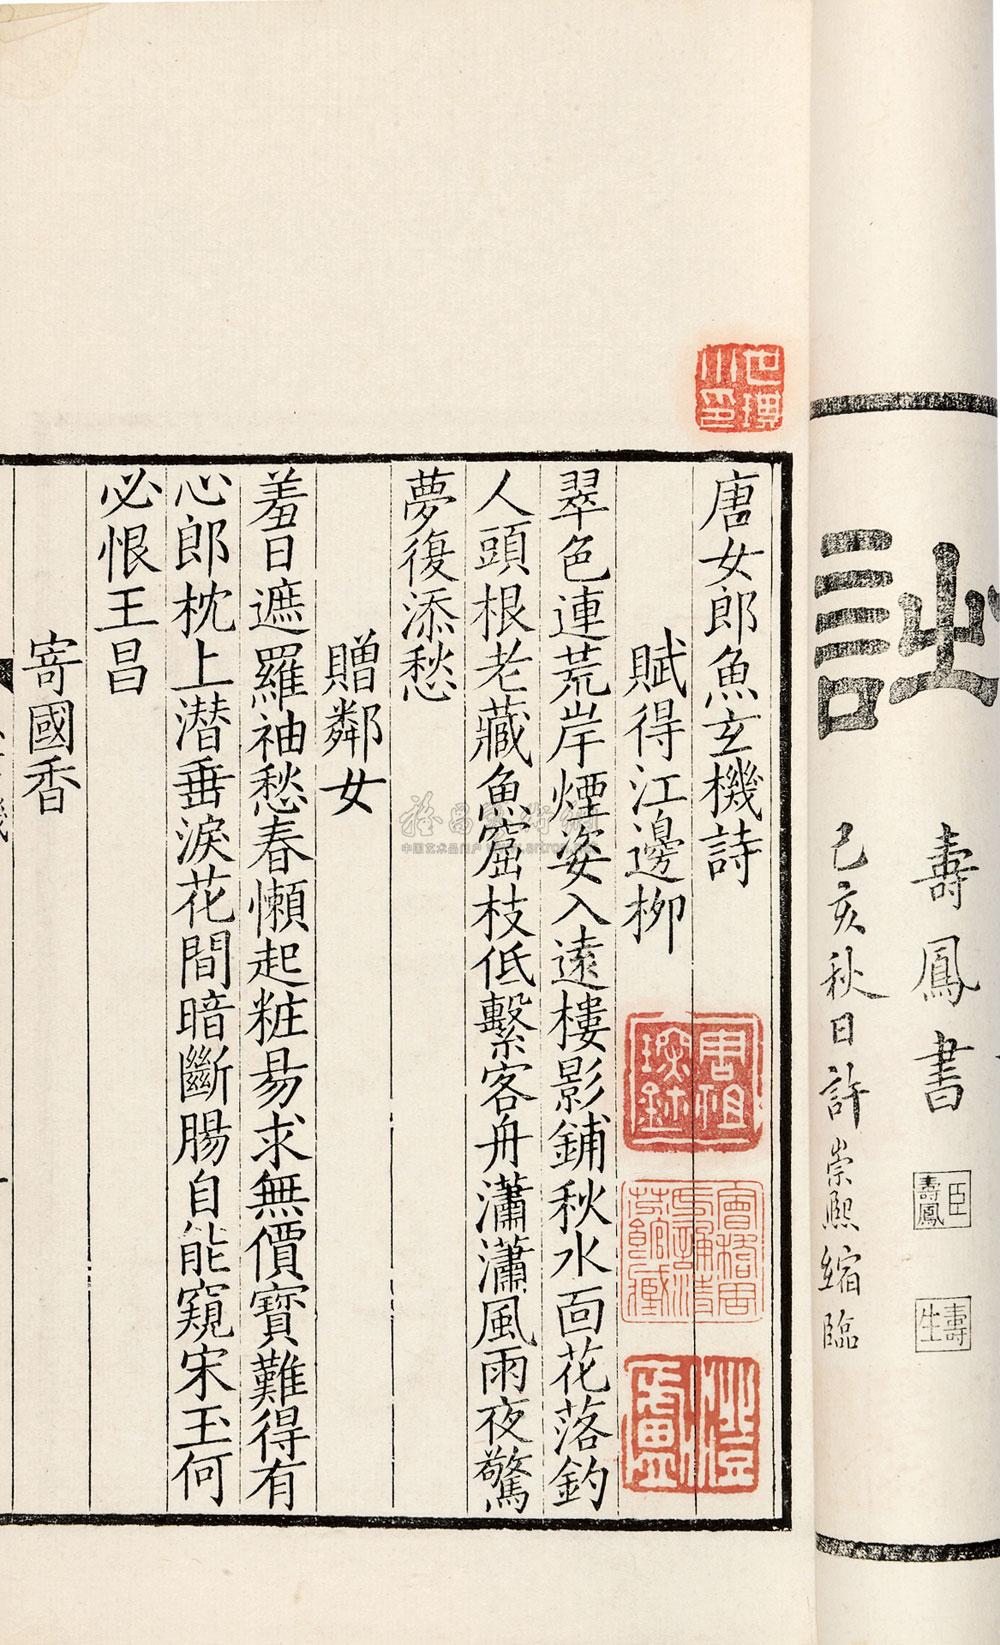 詩
壽鳳書
己亥秋日許崇熙縮臨
臣壽鳳
壽生
唐女郎魚玄機詩
賦得江邊柳
翠色連荒岸煙姿入遠樓影鋪秋水面花落釣
人頭根老藏魚窟枝低繫客舟瀟瀟風雨夜驚
夢復添愁
贈鄰女
羞日遮羅袖愁春懶起粧易求無價寶難得有
心郎枕上潛垂淚花間暗斷腸自能窺宋玉何
必恨王昌
寄國香